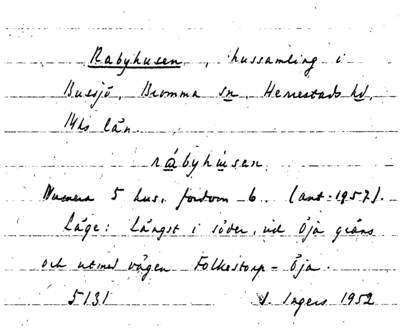 Rabyhusen, hussamling i
Bussjö, Bromma sn, Herrestads hd,
Mhs län.
rábyhùsen
Numera 5 hus, fordom 6. (ant. 1957).
Läge: Längst i söder, vid Öja gräns
och utmed vägen Folkestorp - Öja.
5131 I. Ingers 1952